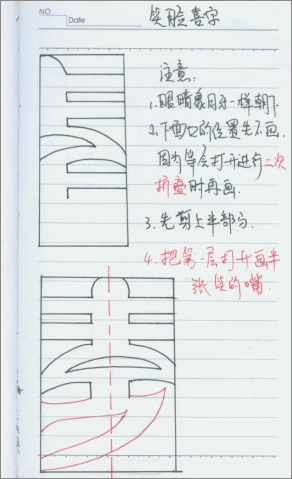 NO
Date
笑脸喜字
注意:
1.眼睛象日字一样朝下.
2.下面口的位置先不画.
因为等会打开进行二次
折叠时再画.
3.先剪上半部分.
4.把第一层打开画半
张笑的嘴.